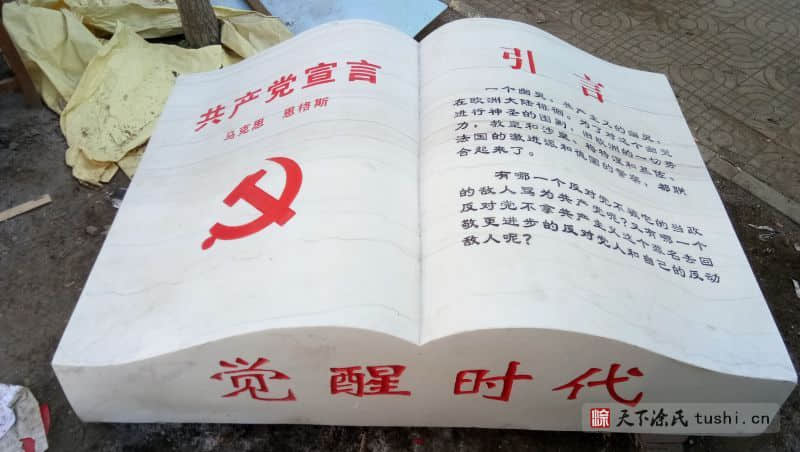 共产党宣言
马克思 恩格斯
引言
一个幽灵,共产主义的幽灵,
在欧洲大陆徘徊。为了对这个幽灵
进行神圣的围剿,旧欧洲的一切势
力,教皇和沙皇,梅特涅和基佐,
法国的激进派和德国的警察,都联
合起来了。
有哪一个反对党不被它的当政
的敌人骂为共产党呢?又有哪一个
反对党不拿共产主义这个罪名去回
敬更进步的反对党人和自己的反动
敌人呢?
觉醒时代
涂 天下涂氏tushi.cn